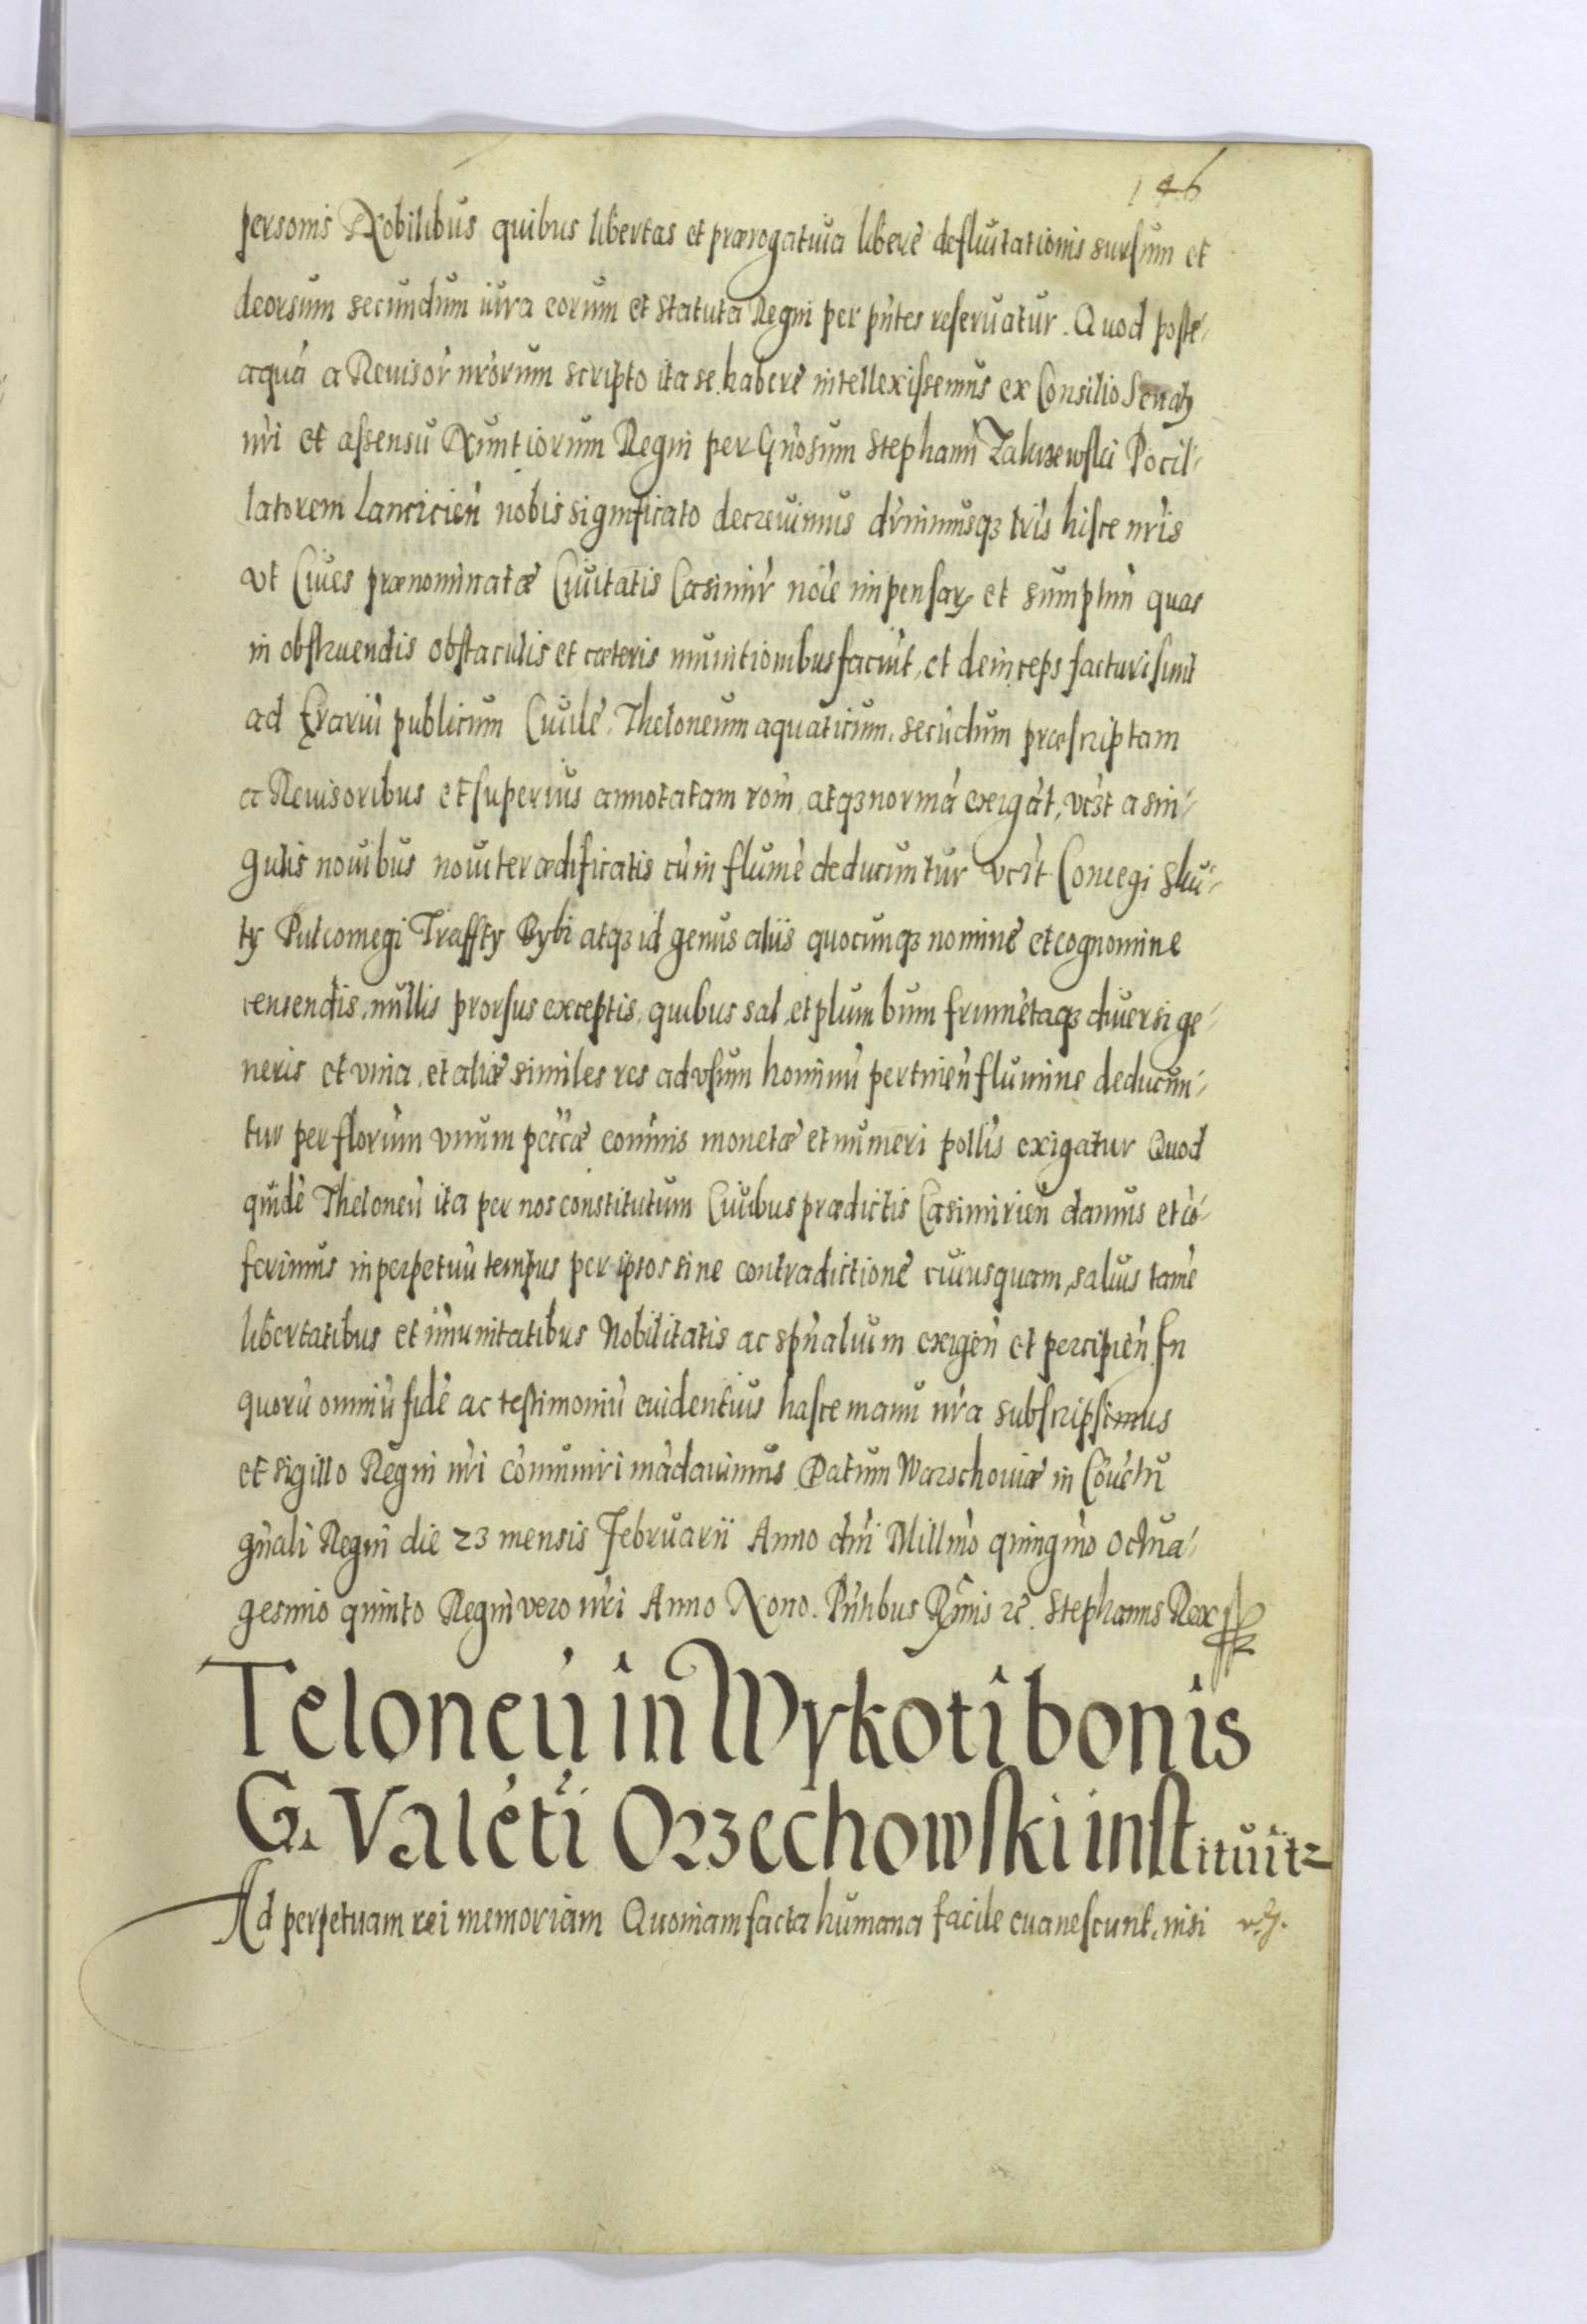 146
personis Nobilibus quibus libertas et prærogatiua liberè defluitationis sursum et
deorsum secundum iura eorum et statuta Regni per pn̄tes reseruatur. Quod poste-
aquā a Reuisor̄ nr̄orum scripto ita se habere intellexissemus ex Consilio Senaty
nr̄i et assensu Nuntiorum Regni per Gn̄osum Stephanū Zaluzewski Pocil-
latorem Lancicien̄ nobis significato decreuimus dr̄nimusqʒ lr̄is hisce nr̄is
vt Ciues prænominatæ Ciuitatis Casimir̄ noīe impensarꝝ et sumptuū quas
in obstruendis obstaculis et cæteris munitionibus faciūt, et deinceps facturi sunt
ad Erariū publicum Ciuile, Theloneum aquaticum, secūdum præscriptam
a Reuisoribus et superius annotatam rōm̄ atqʒ normā exigāt, vcʒt a sin-
gulis nauibus nouiter ædificatis cū in flumē deducuntur vcʒt Comegi Sku-
ty Pulcomegi Traffty Byki atqʒ id genus aliis quocunqʒ nomine et cognomine
censendis, nullis prorsus exceptis, quibus sal, et plumbum frumētaqʒ diuersi ge-
neris et vina, et aliæ similes res ad vsum hominū pertinen̄ flumine deducun-
tur per florenum vnum pecc̄æ com̄unis monetæ et numeri pollīs exigatur Quod
quidē Theloneū ita per nos constitutum Ciuibus prædictis Casimirien̄ damus et cō-
ferimus in perpetuū tempus per ipsos sine contradictione cuiusquam, saluis tamē
libertatibus et im̄unitatibus Nobilitatis ac spn̄alium exigen̄ et percipien̄ In
quorū omniū fidē ac testimoniū euidentius hasce manu nr̄a subscripsimus
et sigillo Regni nr̄i cōmuniri mādauimus Datum Warschouiæ in Cōuētu
gn̄ali Regni die 23 mensis Februarii Anno dn̄i Millm̄o quingm̄o octua-
gesimo quinto Regni vero nr̄i Anno Nono. Pn̄tibus Rm̄is ꝛc̄. Stephanus Rex
Teloneū in Wykoti bonis
G. Valēti Orzechowski instituit~
Ad perpetuam rei memoriam Quoniam facta humana facile euanescunt, nisi